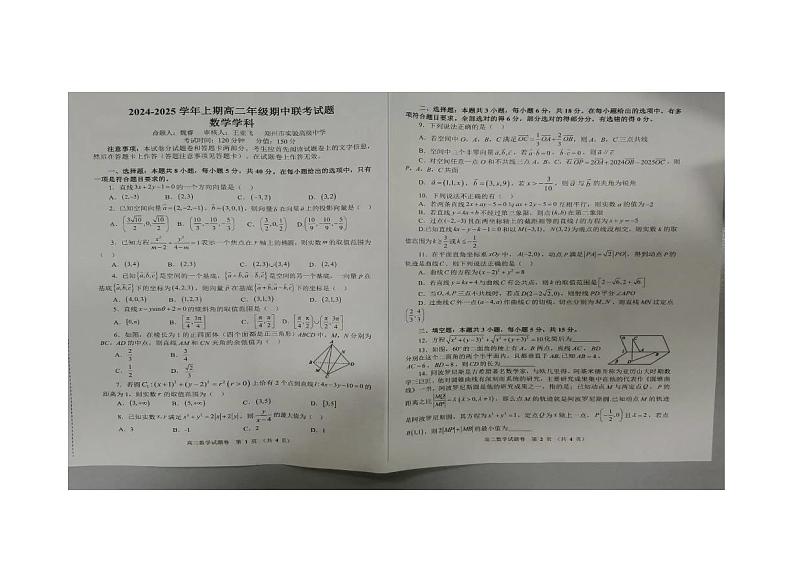 2024-2025 学年上期高二年级期中联考试题
数学学科
命题人:魏睿 审核人:王亚飞 郑州市实验高级中学
考试时间:120 分钟 分值:150 分
注意事项:本试卷分试题卷和答题卡两部分。考生应首先阅读试题卷上的文字信息,
然后在答题卡上作答(答题注意事项见答题卡)。在试题卷上作答无效。
一、选择题:本题共 8 小题,每小题 5 分,共 40 分。在每小题给出的选项中,只有
一项是符合题目要求的。
1. 直线3x+2y−1=0的一个方向向量是( )
A. (2,−3) B. (2,3) C. (−3,2) D. (3,2)
2. 已知空间向量 a=(2,−2,−1), b=(3,0,1),则向量 b 在向量 a 上的投影向量是( )
3. 已知方程 x²/(m−2) + y²/(4−m) =1表示一个焦点在 y 轴上的椭圆,则实数 m 的取值范围为
( )
A. (3,4) B. (2,3) C. (2,3)∪(3,4) D. (2,4)
4. 已知{a,b,c}是空间的一个基底,{a+b,a−b,c}是空间的另一个基底,一向量 p 在
基底{a,b,c}下的坐标为(4,2,3),则向量 p 在基底{a+b,a−b,c}下的坐标是( )
A. (4,0,3) B. (1,2,3) C. (3,1,3) D. (2,1,3)
5. 直线 x−ysinθ+2=0的倾斜角的取值范围是( )
A. [0,π) B. [π/4,3π/4] C. [π/4,π/2] D. [π/4,π/2)∪(π/2,3π/4]
6. 如图,在棱长为 1 的正四面体(四个面都是正三角形)ABCD 中,M,N 分别为
BC,AD 的中点,则直线 AM 和 CN 夹角的余弦值为( )
A. 2/3 B. 3/4
C. 1/2 D. 3/2
7. 若圆C₁:(x+1)²+(y−2)²=r²(r>0)上恰有 2 个点到直线l:4x−3y−10=0的
距离为 1,则实数 r 的取值范围为( )
A. (3,+∞) B. (5,+∞) C. (3,5) D. [3,5]
8. 已知实数 x,y 满足 x²+y²=2|x|+2|y|,则 y/(x−4) 的最大值为( )
A. 3 B. -1 C. 2 D. 1
高二数学试题卷 第 1 页 (共 4 页)
二、选择题:本题共 3 小题,每小题 6 分,共 18 分。在每小题给出的选项中,有多
项符合题目要求。全部选对的得 6 分,部分选对的得部分分,有选错的得 0 分。
9. 下列说法正确的是( )
A. 若空间中 O、A、B、C 满足OC=1/3 OA+2/3 OB,则 A、B、C 三点共线
B. 空间中三个非零向量 a,b,c,若 a·b=0,b·c=0,则 a//c
C. 对空间任意一点 O 和不共线三点 A、B、C,若OP=2OA+2024OB−2025OC,则
P、A、B、C 共面
D. a=(1,1,x),b=(3,x,9),若 x>−3/10,则 a 与 b 的夹角为锐角
10. 下列说法不正确的有( )
A. 若两条直线2x+ay−5=0与ax+2y+5=0互相平行,则实数 a 的值为−2
B. 若直线 y=kx+b 不经过第三象限,则点(k,b)在第二象限
C. 过点(−2,−3)且在两坐标轴上的截距相等的直线 l 的方程为 x+y=−5
D.已知直线kx−y−k−1=0和以M(−3,1),N(3,2)为端点的线段相交,则实数 k 的取
值范围为k≥3/2或k≤−1/2
11. 在平面直角坐标系 xOy 中,A(−2,0),动点 P 满足|PA|=√2|PO|,得到动点 P 的
轨迹是曲线 C。则下列说法正确的是( )
A. 曲线 C 的方程为(x−2)²+y²=8
B. 若直线 y=kx+4与曲线 C 有公共点,则 k 的取值范围是[−2−√6,2+√6]
C. 当 O,A,P 三点不共线时,若点D(2−2√2,0),则射线 PD 平分∠APO
D. 过曲线 C 外一点(a−4,a)作曲线 C 的切线,切点分别为 M,N,则直线 MN 过定点
三、填空题:本题共 3 小题,每小题 5 分,共 15 分。
13. 如图,60°的二面角的棱上有 A,B 两点,直线 AC、BD
分别在这个二面角的两个半平面内,且都垂直于 AB,已知 AB=4,
AC=6,BD=8,则 CD 的长为______.
14. 阿波罗尼斯是古希腊著名数学家,与欧几里得、阿基米德并称为亚历山大时期数